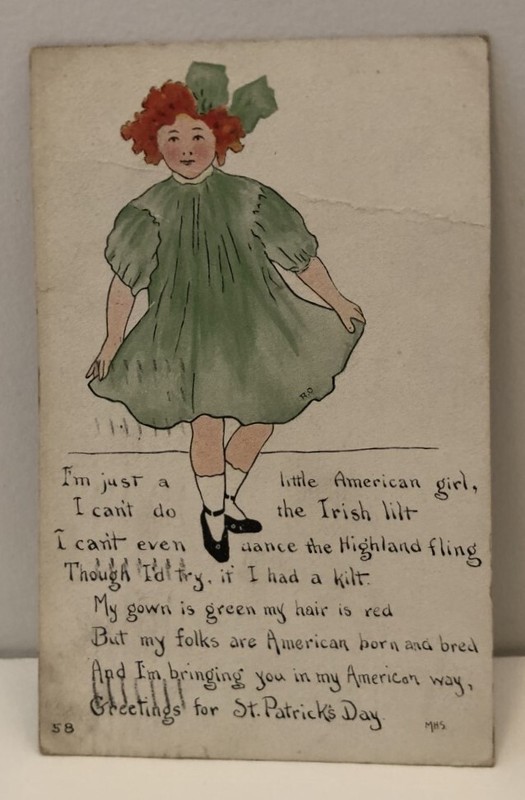 R.O.
I'm just a little American girl,
I can't do the Irish lilt
I can't even dance the Highland fling
Though I'd try, if I had a kilt.
My gown is green my hair is red
But my folks are American born and bred
And I'm bringing you in my American way,
Greetings for St. Patrick's Day.
58 MHS